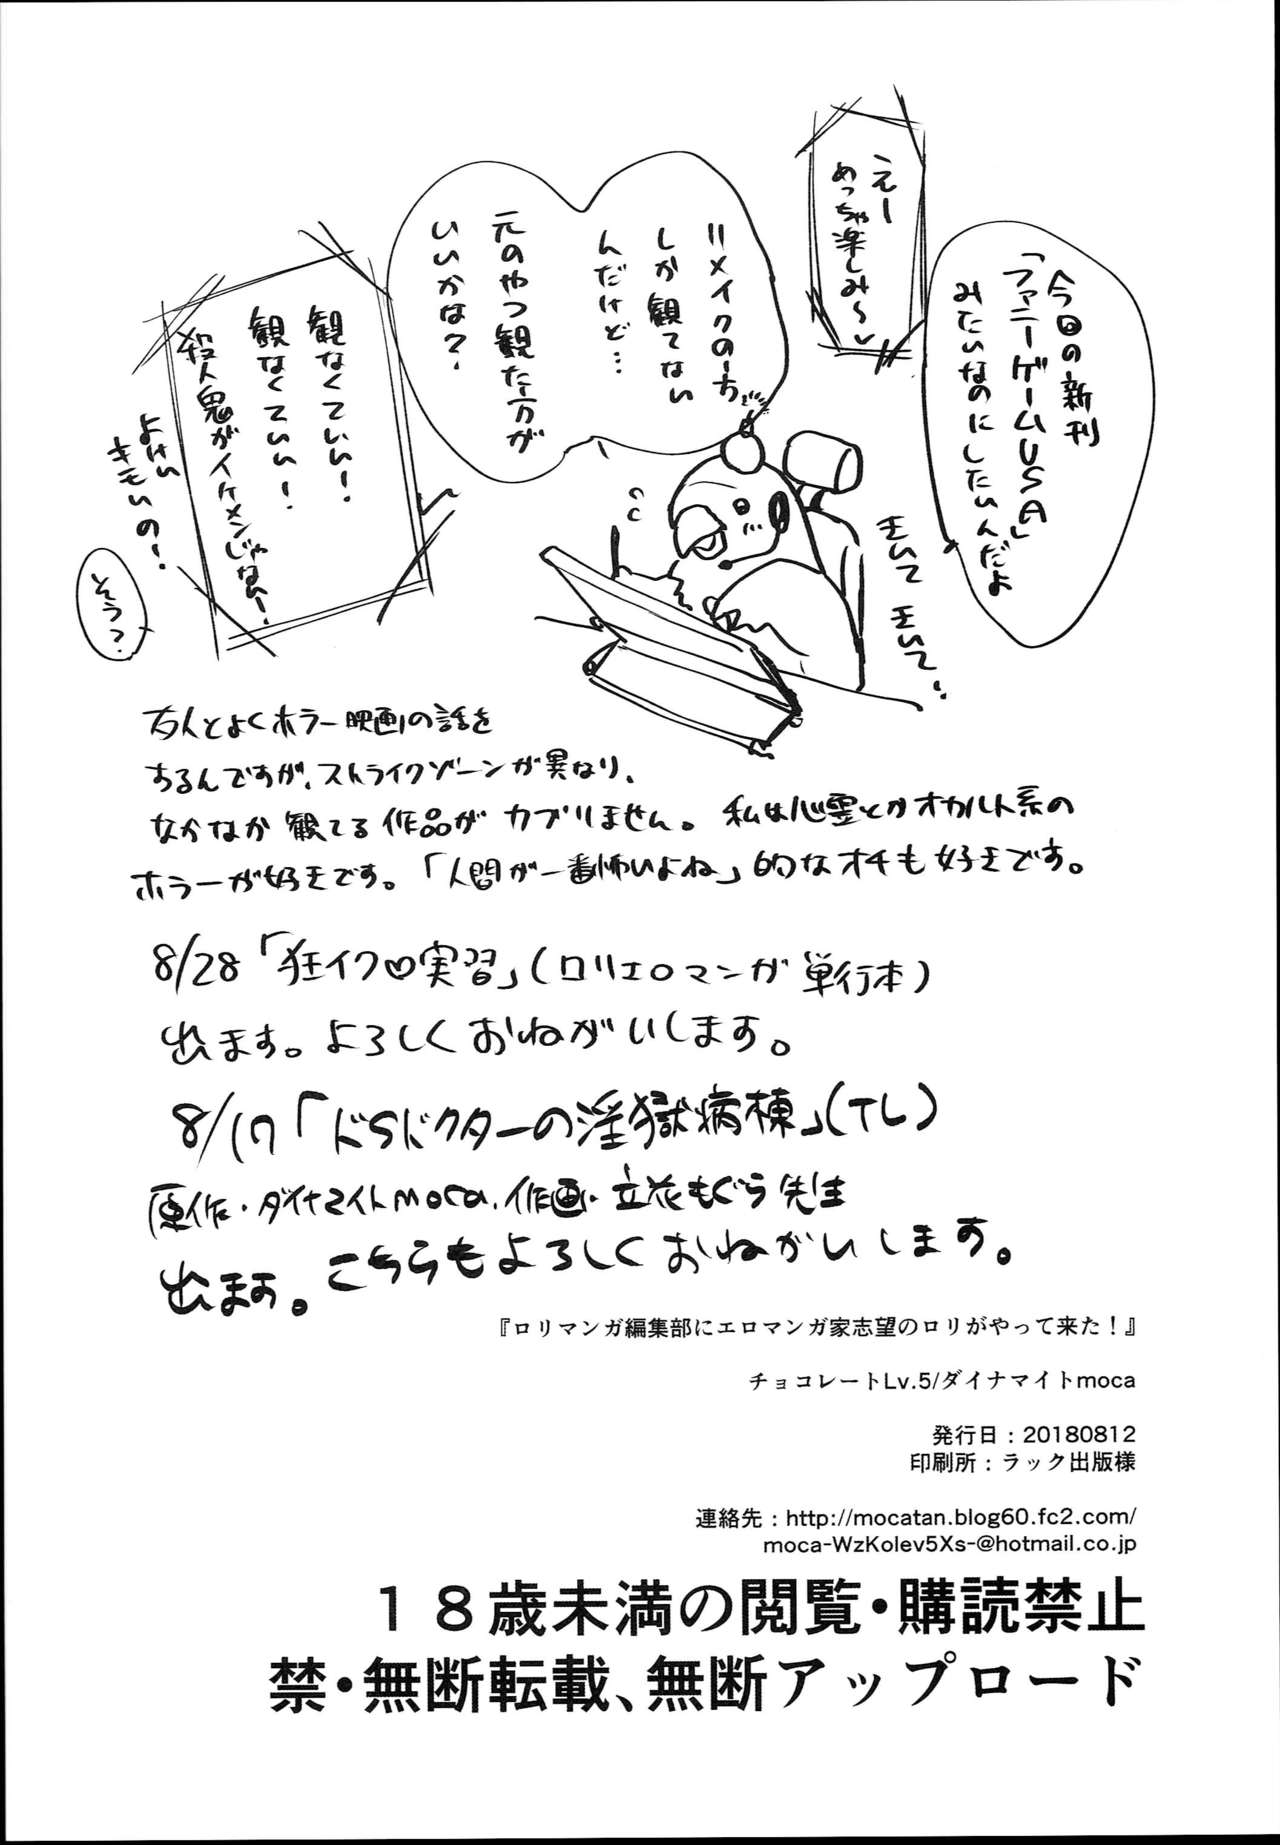 今回の新刊
「ファニーゲームUSA」
みたいなのにしたいんだよ
えー
めっちゃ楽しみ～♡
リメイクの方
しか観てない
んだけど…
元のやつ観た方が
いいかな？
観なくていい！
観なくていい！
殺人鬼がイケメンじゃない！
よけい
キモいの！
そう？
友人とよくホラー映画の話を
するんですが、ストライクゾーンが異なり、
なかなか観てる作品がカブりません。私は心霊とかオカルト系の
ホラーが好きです。「人間が一番怖いよね」的なオチも好きです。
8/28「狂イク♡実習」（ロリエロマンガ単行本）
出ます。よろしくおねがいします。
8/17「ドSドクターの淫獄病棟」（TL）
原作・ダイナマイトmoca、作画・立花もぐら先生
出ます。こちらもよろしくおねがいします。
『ロリマンガ編集部にエロマンガ家志望のロリがやって来た！』
チョコレートLv.5/ダイナマイトmoca
発行日：20180812
印刷所：ラック出版様
連絡先：http://mocatan.blog60.fc2.com/
moca-WzKolev5Xs-@hotmail.co.jp
１８歳未満の閲覧・購読禁止
禁・無断転載、無断アップロード